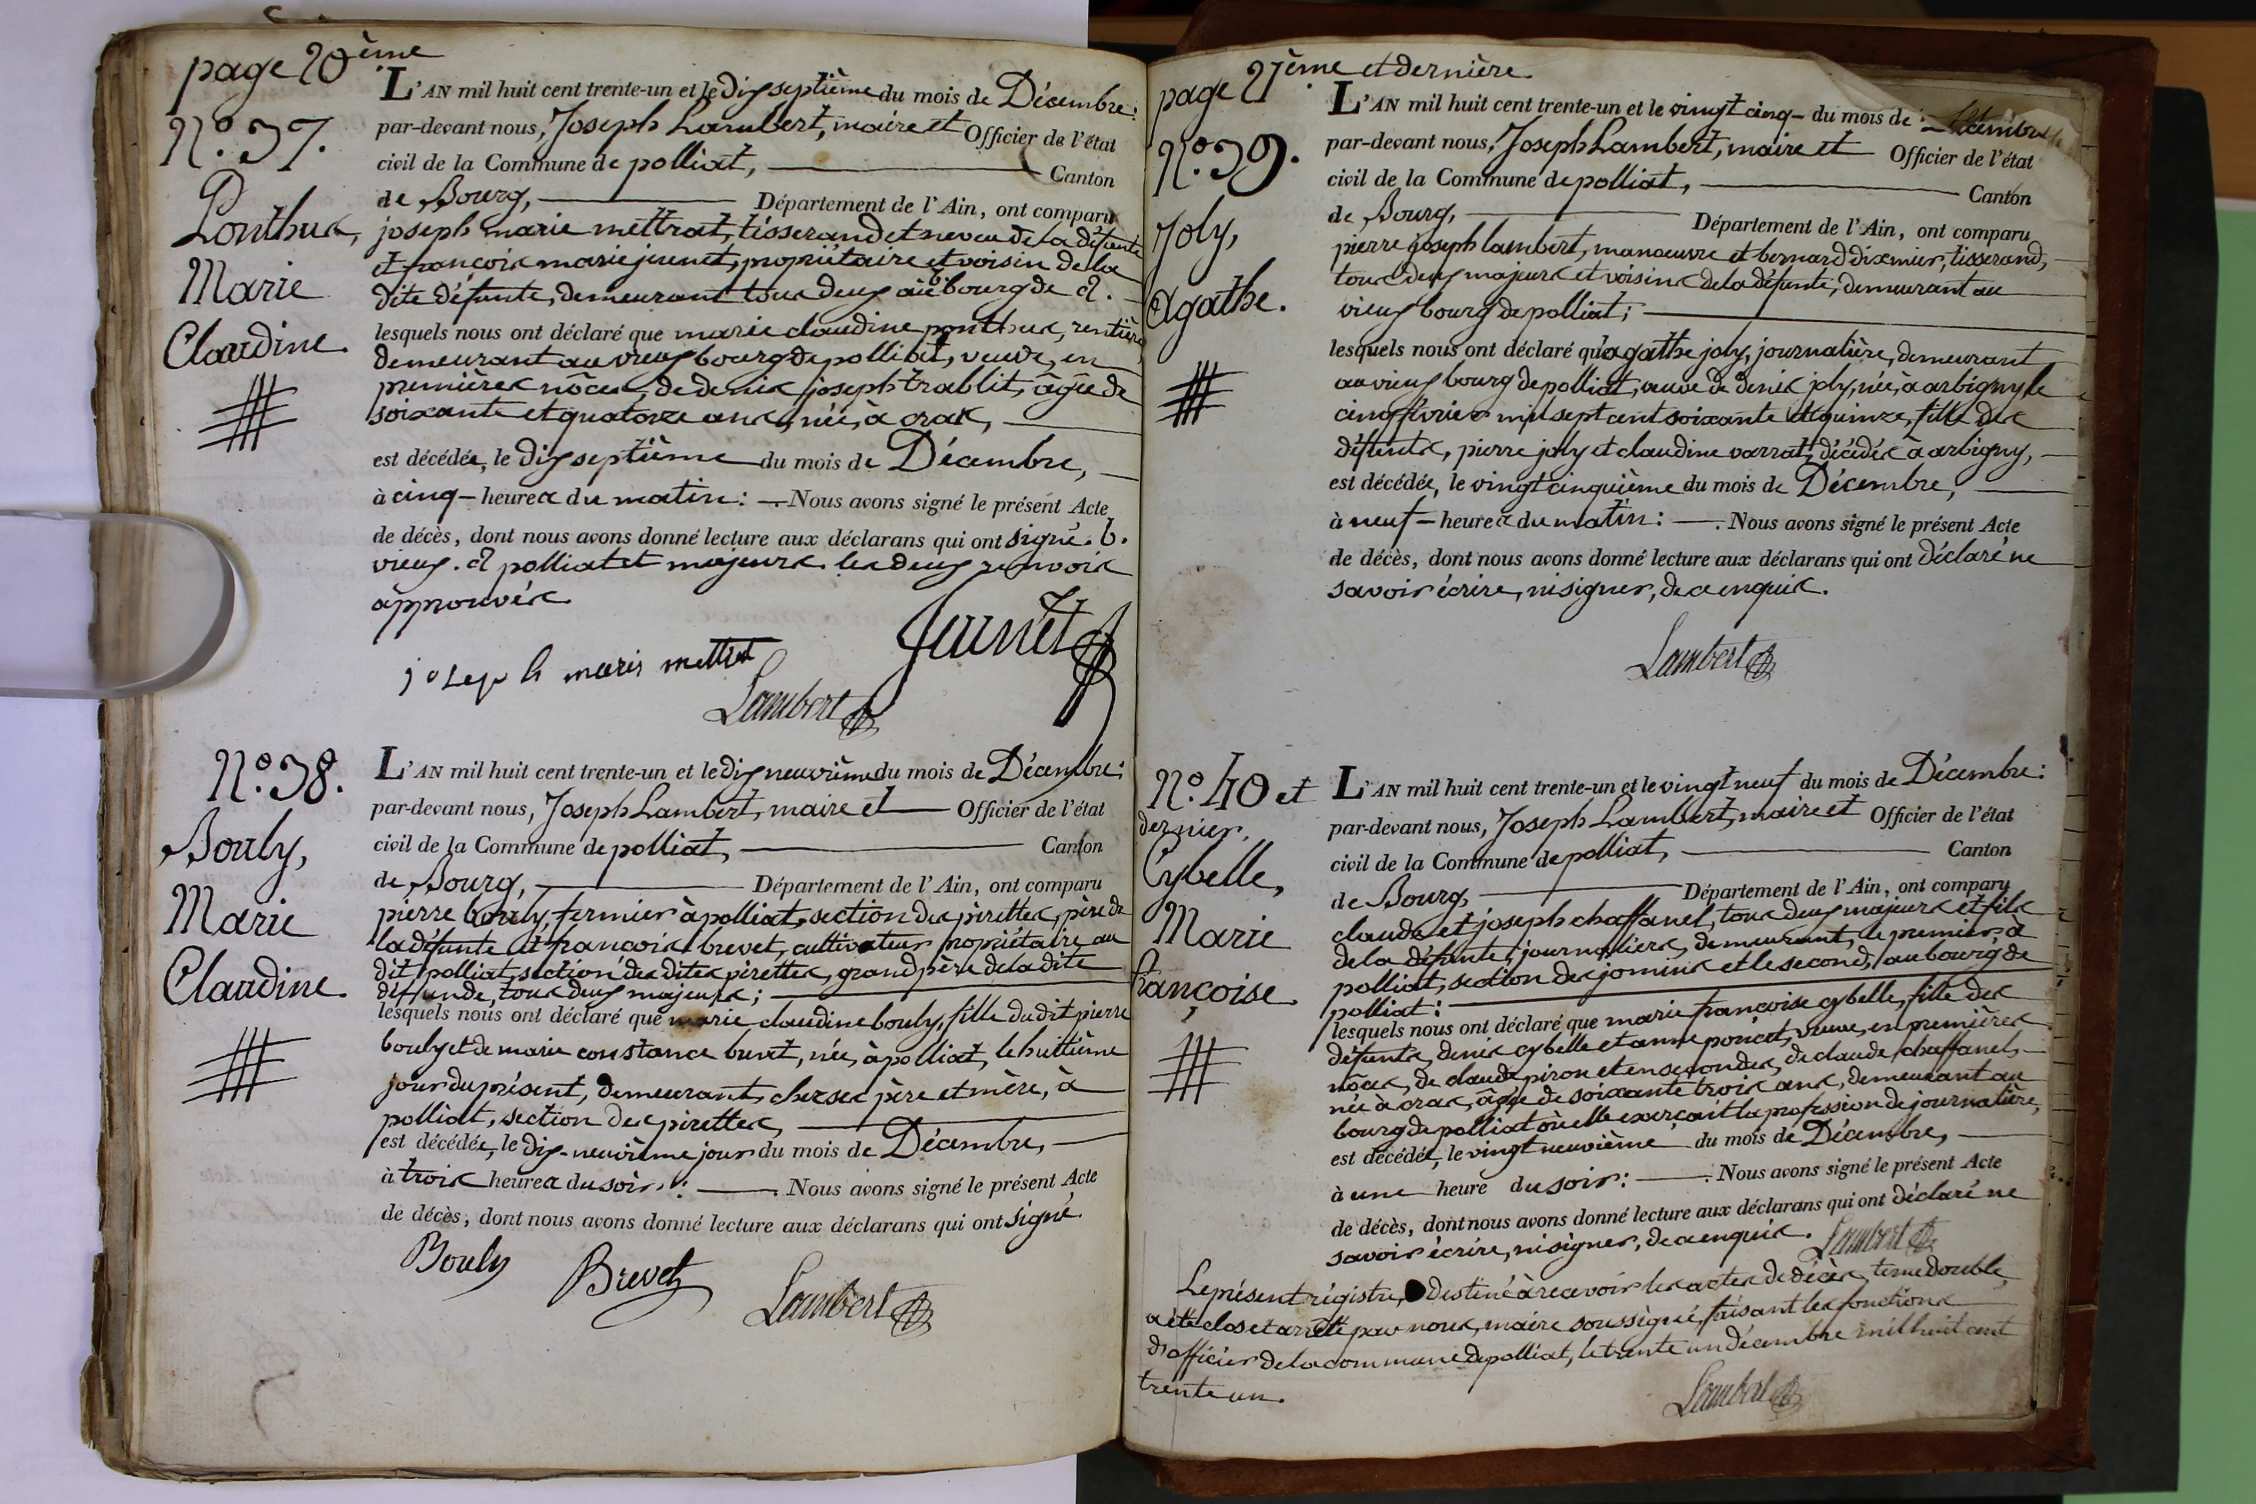 page 20ème
N.o 37.
Ponthus,
Marie
Claudine.
L'AN mil huit cent trente-un et le dix septième du mois de Décembre:
par-devant nous, Joseph Lambert, maire et Officier de l'état
civil de la Commune de polliat, Canton
de Bourg, Département de l'Ain, ont comparu
joseph marie mettrat, tisserand et neveu de la défunte
et françois marie jeunet, propriétaire et voisin de la
dite défunte, demeurant tous deux au b bourg de a.
lesquels nous ont déclaré que marie claudine ponthus, rentière
demeurant au vieux bourg de polliat, veuve, en
premières nôces, de denis joseph trablit, âgée de
soixante et quatorze ans, née, à cras,
est décédée, le dix septième du mois de Décembre,
à cinq heures du matin: Nous avons signé le présent Acte
de décès, dont nous avons donné lecture aux déclarans qui ont signé. b.
vieux. a polliat et majeurs. les deux renvois
approuvés
joseph marie mettrat
Jeunet
Lambert
N.o 38.
Bouly,
Marie
Claudine.
L'AN mil huit cent trente-un et le dix neuvième du mois de Décembre:
par-devant nous, Joseph Lambert, maire et Officier de l'état
civil de la Commune de polliat, Canton
de Bourg, Département de l'Ain, ont comparu
pierre bouly, fermier à polliat, section des pirettes, père de
la défunte et françois brevet, cultivateur propriétaire au
dit polliat, section des dites pirettes, grand père de la dite
défunde, tous deux majeurs;
lesquels nous ont déclaré que marie claudine bouly, fille du dit pierre
bouly et de marie constance buvet, née, à polliat, le huitième
jour du présent, demeurant, chez ses père et mère, à
polliat, section des pirettes,
est décédée, le dix-neuvième jour du mois de Décembre,
à trois heures du soir: Nous avons signé le présent Acte
de décès, dont nous avons donné lecture aux déclarans qui ont signé.
Bouly
Brevet
Lambert
page 21ème et dernière.
N.o 39.
Joly,
Agathe.
L'AN mil huit cent trente-un et le vingt cinq du mois de Décembre
par-devant nous, Joseph Lambert, maire et Officier de l'état
civil de la Commune de polliat, Canton
de Bourg, Département de l'Ain, ont comparu
pierre joseph lambert, manoeuvre et bernard dixmier, tisserand,
tous deux majeurs et voisins de la défunte, demeurant au
vieux bourg de polliat;
lesquels nous ont déclaré qu'agathe joly, journalière, demeurant
au vieux bourg de polliat, veuve de denis joly, née, à arbigny le
cinq février mil sept cent soixante et quinze, fille des
défunts, pierre joly et claudine varrat, décédés à arbigny,
est décédée, le vingt cinquième du mois de Décembre,
à neuf heures du matin: Nous avons signé le présent Acte
de décès, dont nous avons donné lecture aux déclarans qui ont déclaré ne
savoir écrire, ni signer, de ce enquis.
Lambert
N.o 40 et
dernier.
Cybelle,
Marie
françoise.
L'AN mil huit cent trente-un et le vingt neuf du mois de Décembre:
par-devant nous, Joseph Lambert, maire et Officier de l'état
civil de la Commune de polliat, Canton
de Bourg, Département de l'Ain, ont comparu
claude et joseph chaffanel, tous deux majeurs et fils
de la défunte, journaliers, demeurant, le premier, à
polliat, section des jomins et le second, au bourg de
polliat:
lesquels nous ont déclaré que marie françoise cybelle, fille des
défunts, denis cybelle et anne poncet, veuve, en premières
nôces, de claude piron et en secondes, de claude chaffanel,
née à cras, âgée de soixante trois ans, demeurant au
bourg de polliat où elle exerçait la profession de journalière,
est décédée, le vingt neuvième du mois de Décembre,
à une heure du soir: Nous avons signé le présent Acte
de décès, dont nous avons donné lecture aux déclarans qui ont déclaré ne
savoir écrire, ni signer, de ce enquis. Lambert
Le présent régistre, destiné à recevoir les actes de décès, tenu double,
a été clos et arrêté par nous, maire soussigné, faisant les fonctions
d'officier de la commune de polliat, le trente un décembre mil huit cent
trente un.
Lambert